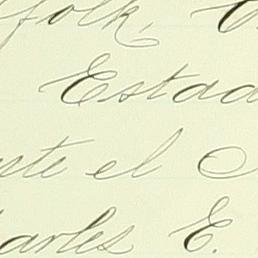 folk,
Estad
ste el
arles E.